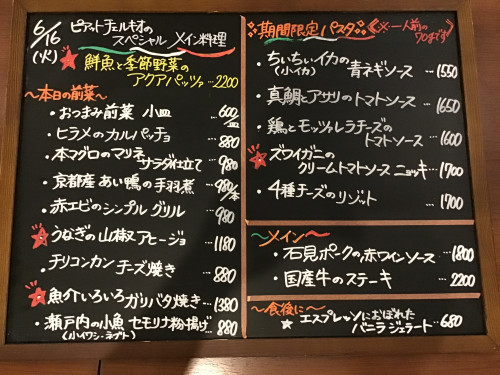 6/16
(火)
ピアットチェルキオの
スペシャル メイン料理
鮮魚と季節野菜の
アクアパッツァ …2200
〜本日の前菜〜
・おつまみ前菜 小皿 … 600/皿
・ヒラメのカルパッチョ … 880
・本マグロのマリネ
サラダ仕立て … 980
・京都産 あい鴨の手羽煮 … 980/本
・赤エビのシンプル グリル … 980
うなぎの山椒アヒージョ … 1180
・チリコンカン チーズ焼き … 880
魚介いろいろガリバタ焼き … 1380
・瀬戸内の小魚 セモリナ粉揚げ … 880
(小イワシ・ネブト)
期間限定パスタ
※一人前の
70gです!
・ちいちいイカの
(小イカ)
青ネギソース … 1550
・真鯛とアサリのトマトソース … 1650
・鶏とモッツァレラチーズの
トマトソース … 1600
ズワイガニの
クリームトマトソース ニョッキ … 1700
・4種チーズのリゾット … 1700
〜メイン〜
・石見ポークの赤ワインソース … 1800
・国産牛のステーキ … 2200
〜食後に〜
★ エスプレッソにおぼれた
バニラジェラート … 680